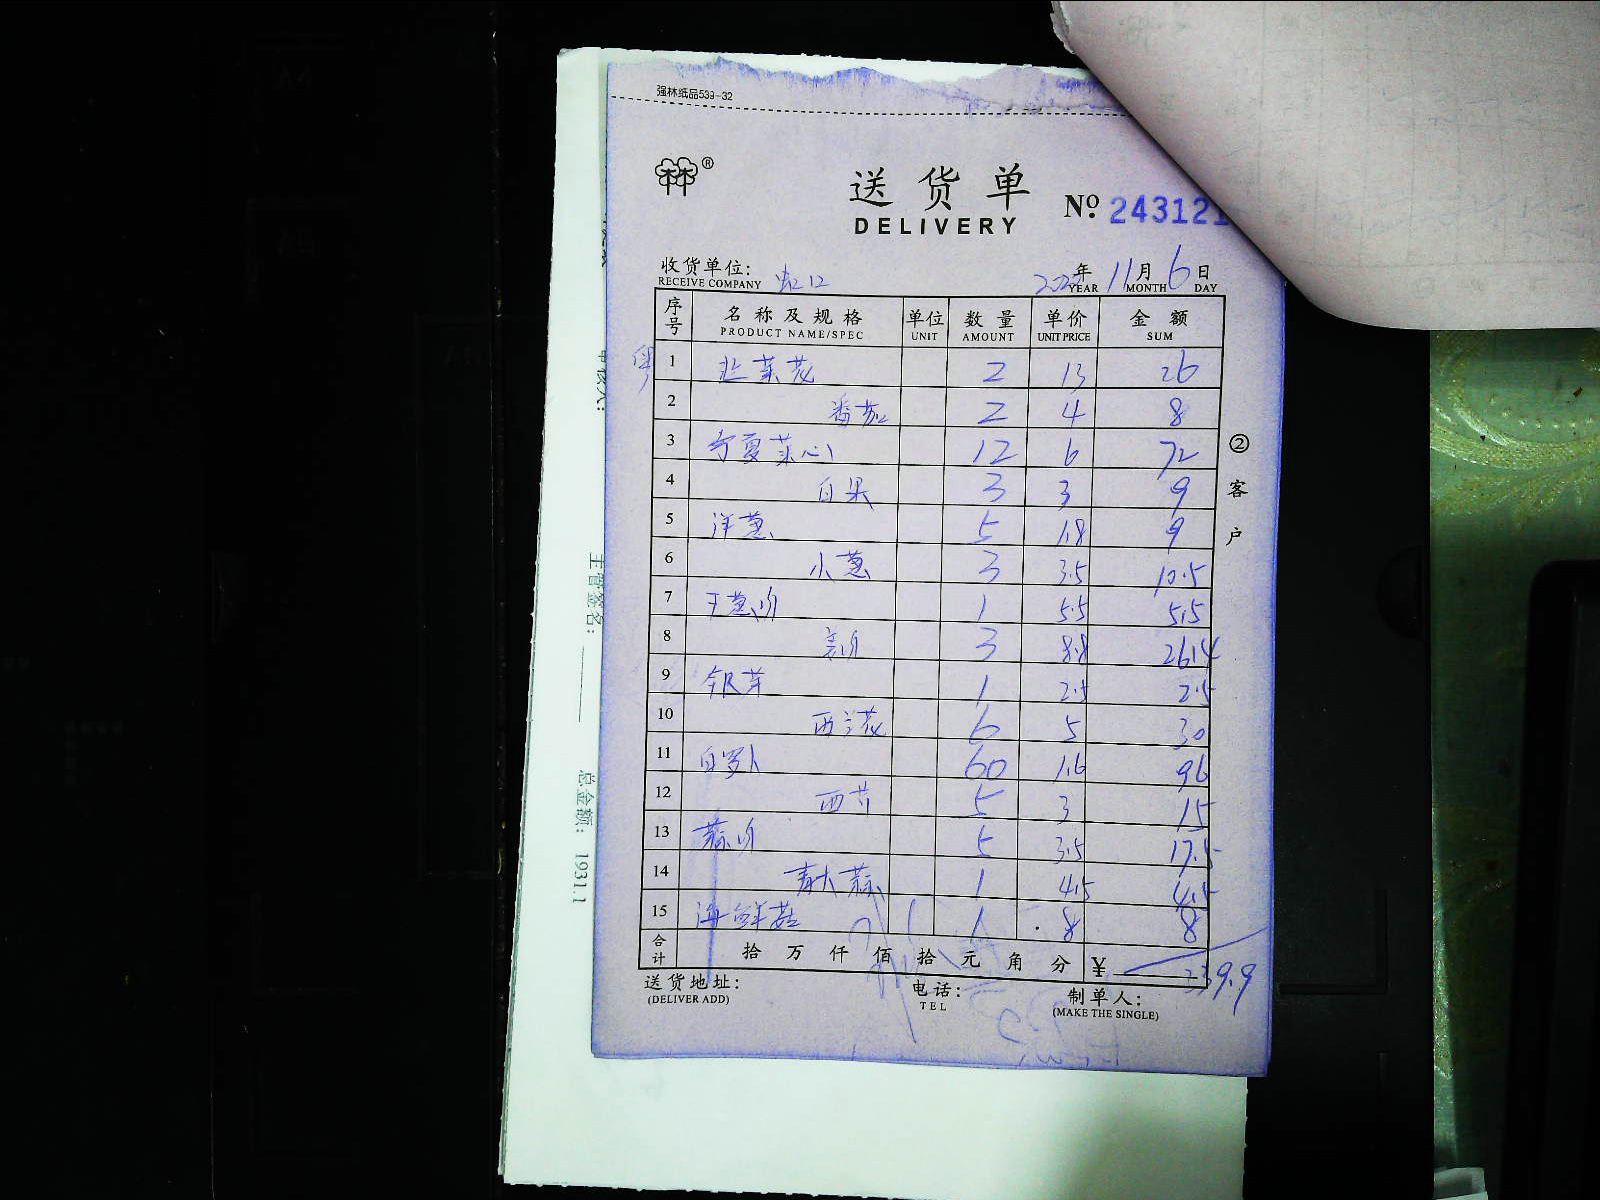 强林纸品539-32
®
送货单
DELIVERY
№ 243121
收货单位: 虹口
RECEIVE COMPANY
年 11月 6日
YEAR MONTH DAY
序号 名称及规格 单位 数量 单价 金额
PRODUCT NAME/SPEC UNIT AMOUNT UNIT PRICE SUM
粤
1 韭菜花 2 13 26
2 番茄 2 4 8
3 宁夏菜心 12 6 72
4 白果 3 3 9
5 洋葱 5 1.8 9
6 小葱 3 3.5 10.5
7 干葱 1 5.5 5.5
8 3 8.8 26.4
9 银芽 1 2.5 2.5
10 西兰花 6 5 30
11 白罗卜 60 1.6 96
12 西芹 5 3 15
13 蒜 5 3.5 17.5
14 青大蒜 1 4.5 4.5
15 海鲜菇 1 8 8
合计 拾万仟佰拾元角分 ¥ 339.9
送货地址: 电话: 制单人:
(DELIVER ADD) TEL (MAKE THE SINGLE)
②客户
主管签名:
总金额: 1931.1